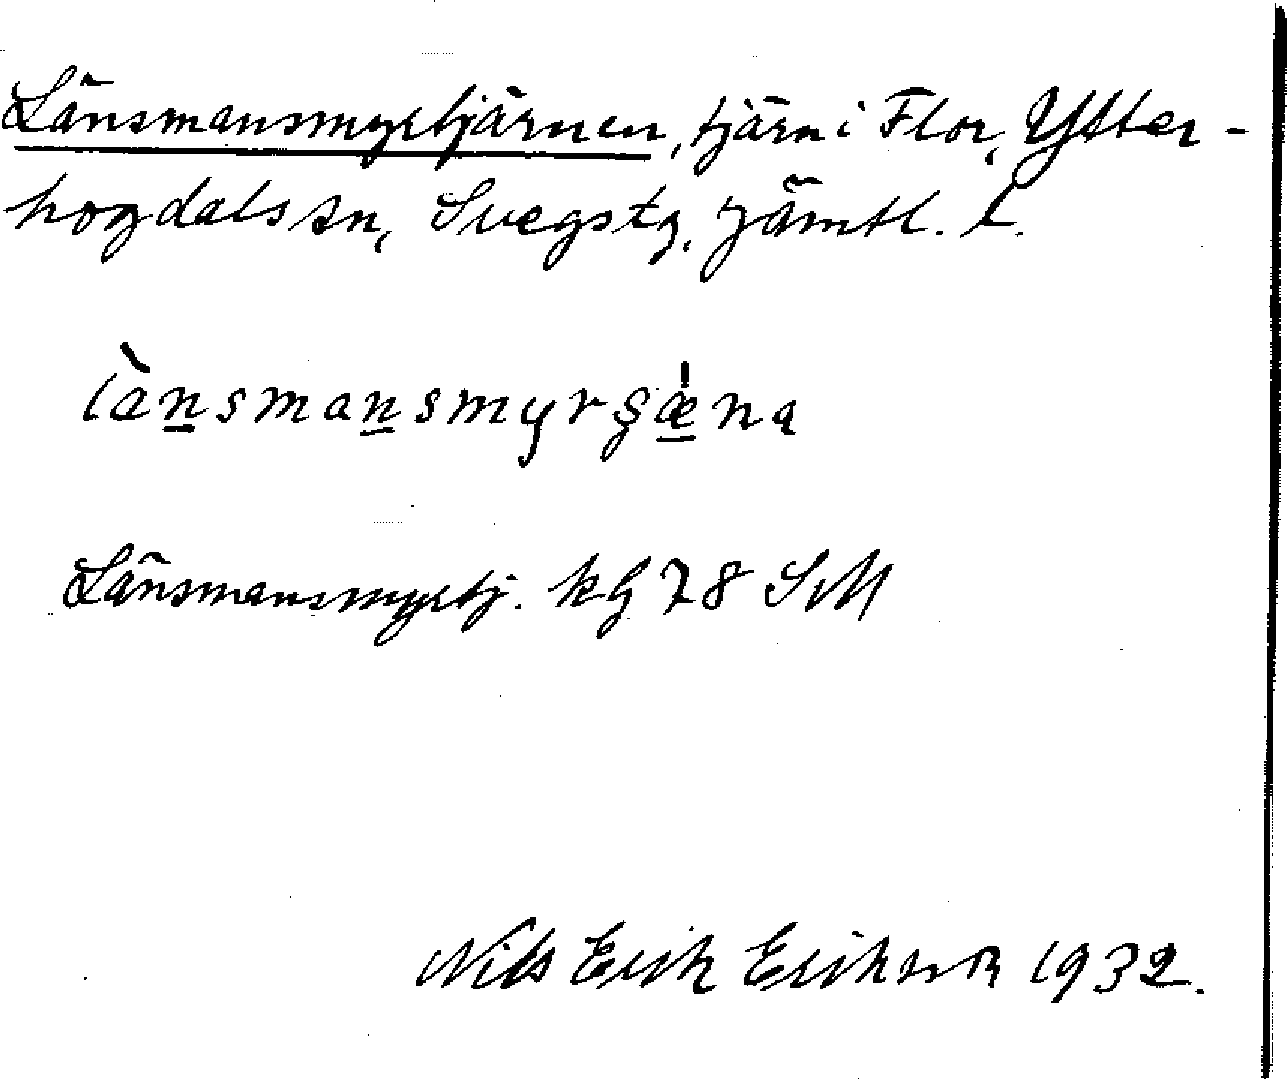 Länsmansmyrtjärnen, tjärn i Flor, Ytter-
hogdals sn, Svegs tg. Jämtl. l.
lànsmansmyrşæ̍na
Länsmansmyrtj. kg 78 SvM
Nils Erik Eriksson 1932.